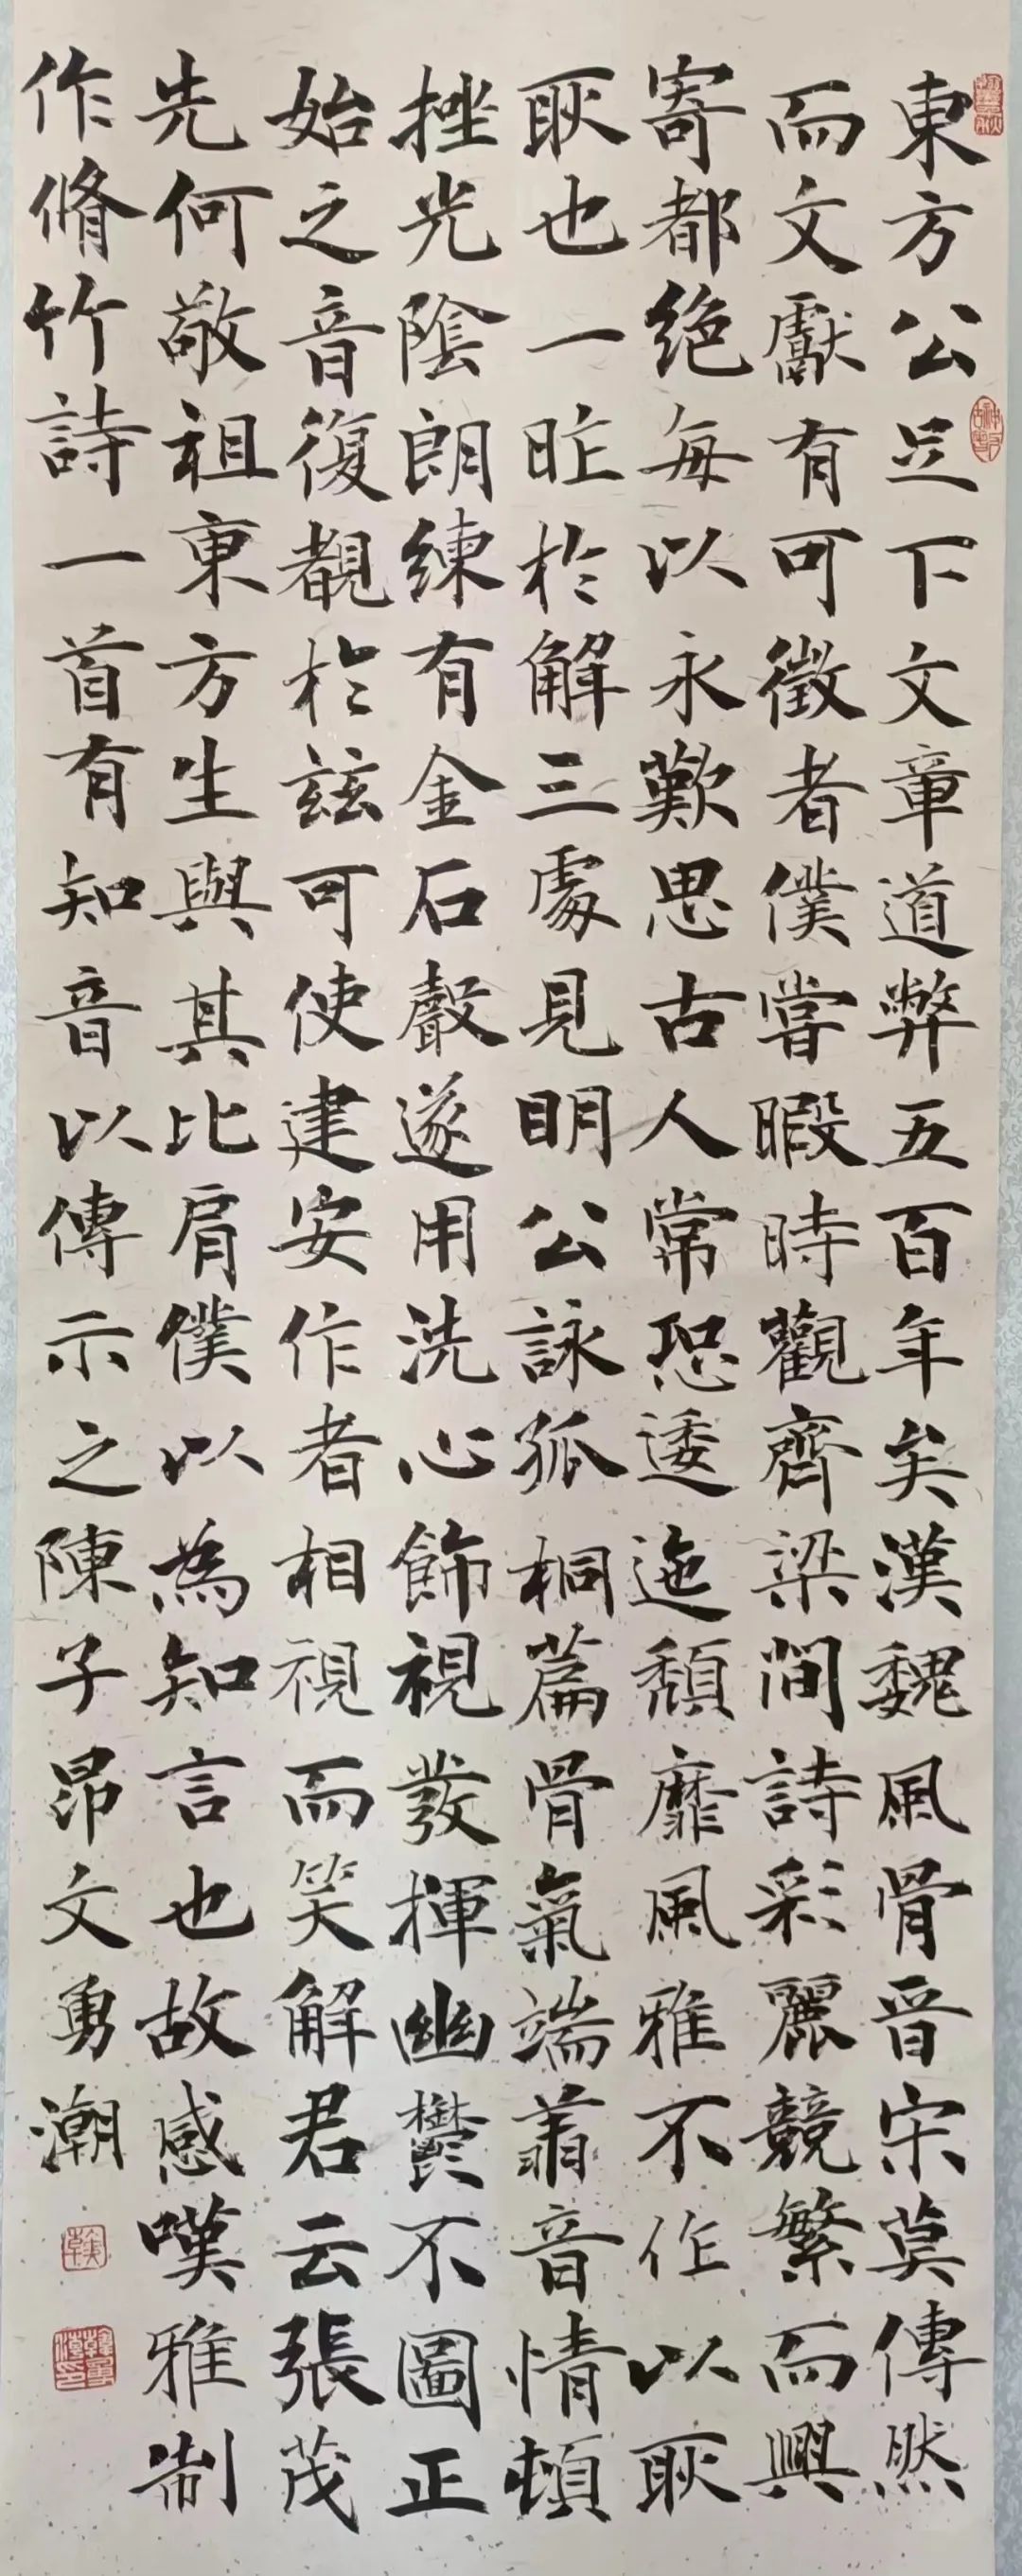 東方公足下文章道弊五百年矣漢魏風骨晉宋莫傳然
而文獻有可徵者僕嘗暇時觀齊梁間詩彩麗競繁而興
寄都絕每以永歎思古人常恐逶迤頹靡風雅不作以耿
耿也一昨於解三處見明公詠孤桐篇骨氣端翦音情頓
挫光陰朗練有金石聲遂用洗心飾視發揮幽鬱不圖正
始之音復覩於茲可使建安作者相視而笑解君云張茂
先何敬祖東方生與其比肩僕以為知言也故感嘆雅制
作脩竹詩一首有知音以傳示之陳子昂文勇潮